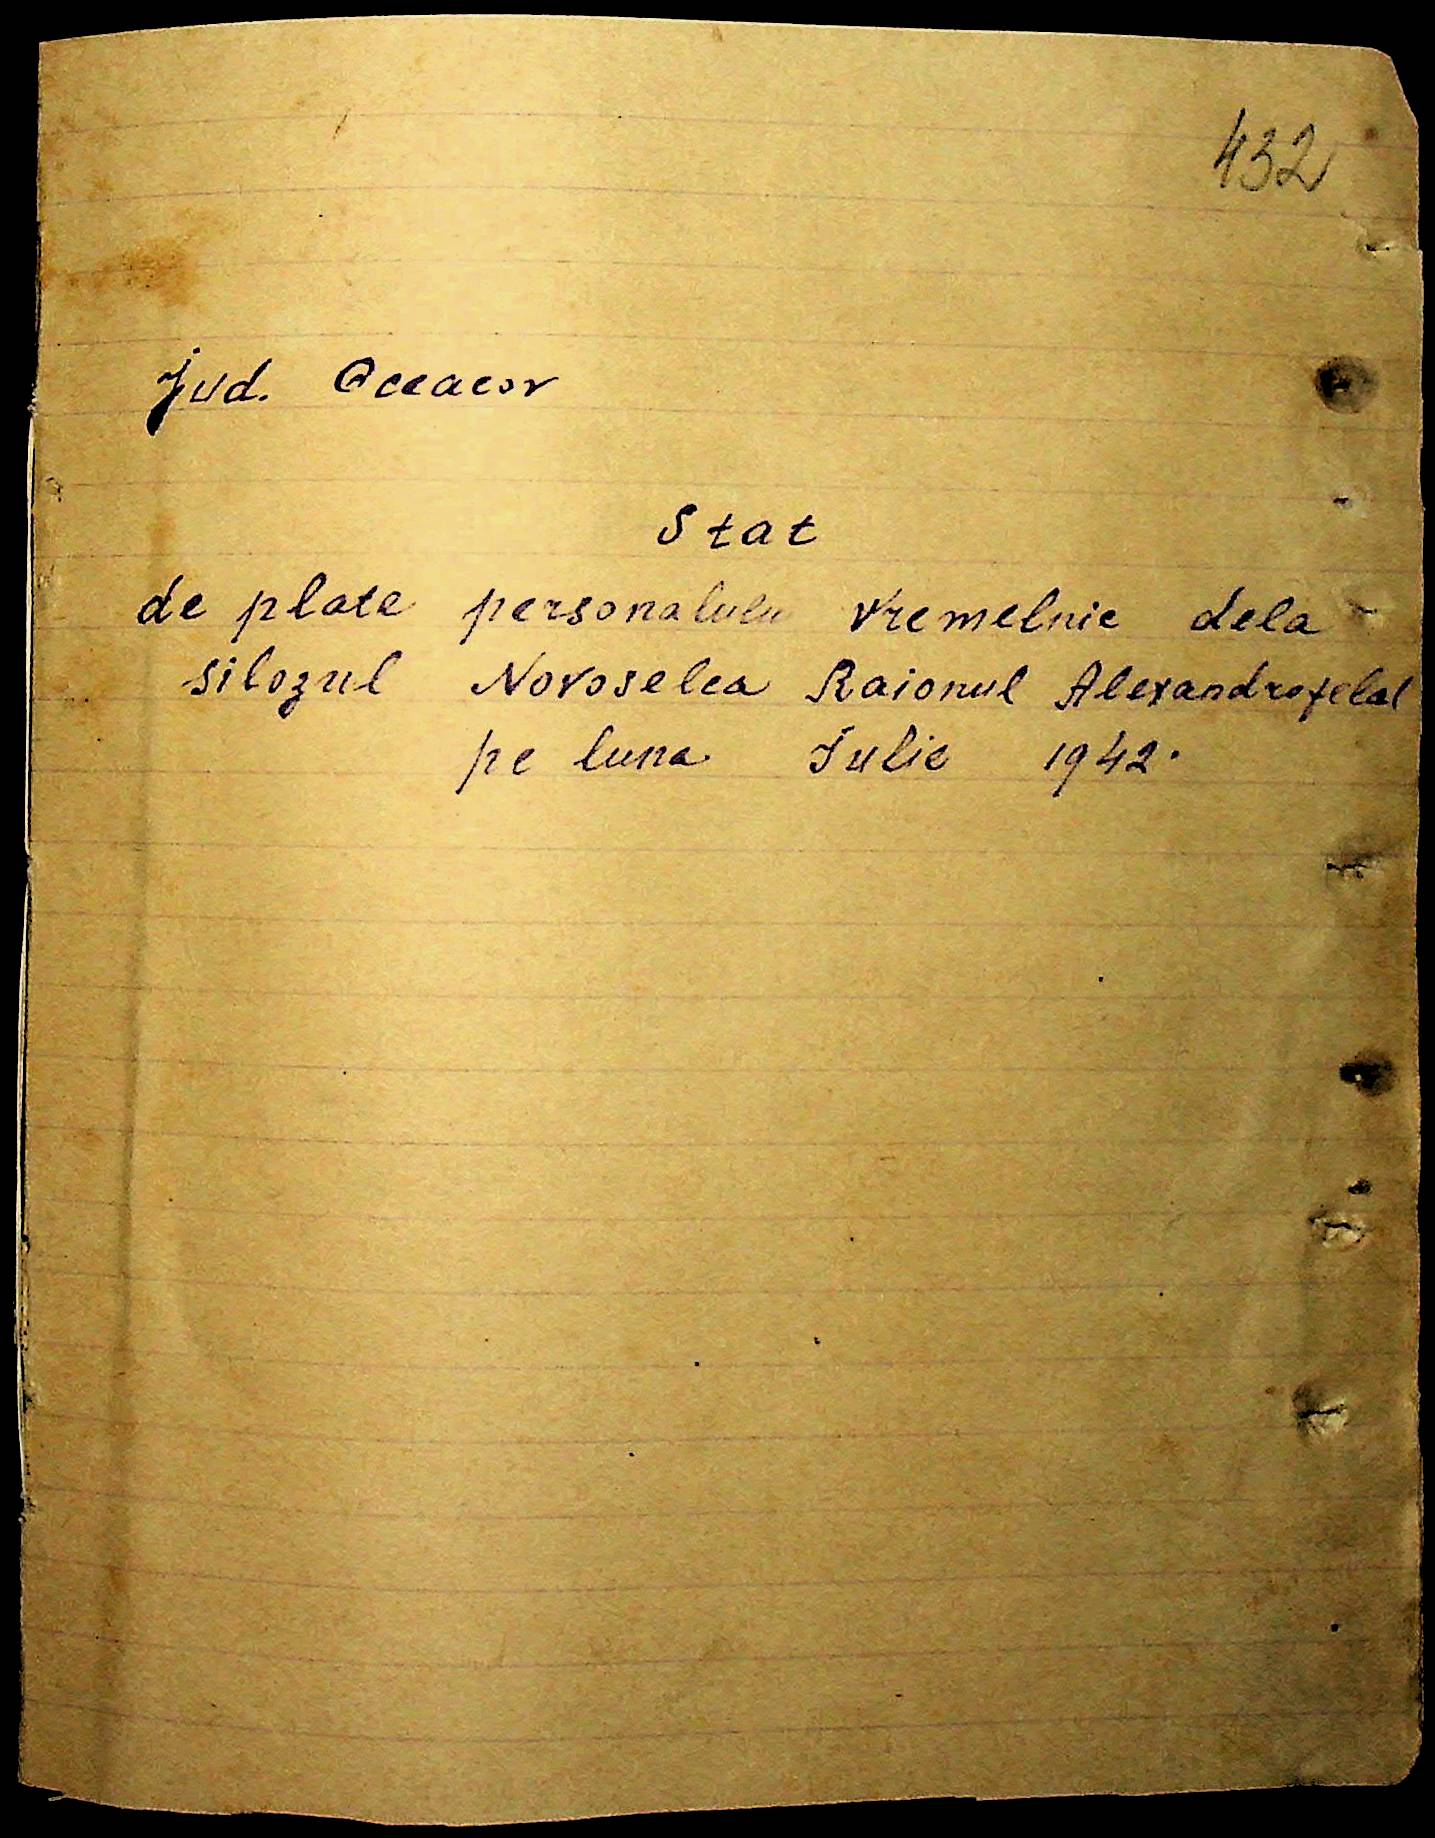 432
Jud. Oceacov
Stat
de plate personalulu vremelnic dela
silozul Novoselca Raionul Alexandrofelds
pe luna Iulie 1942.